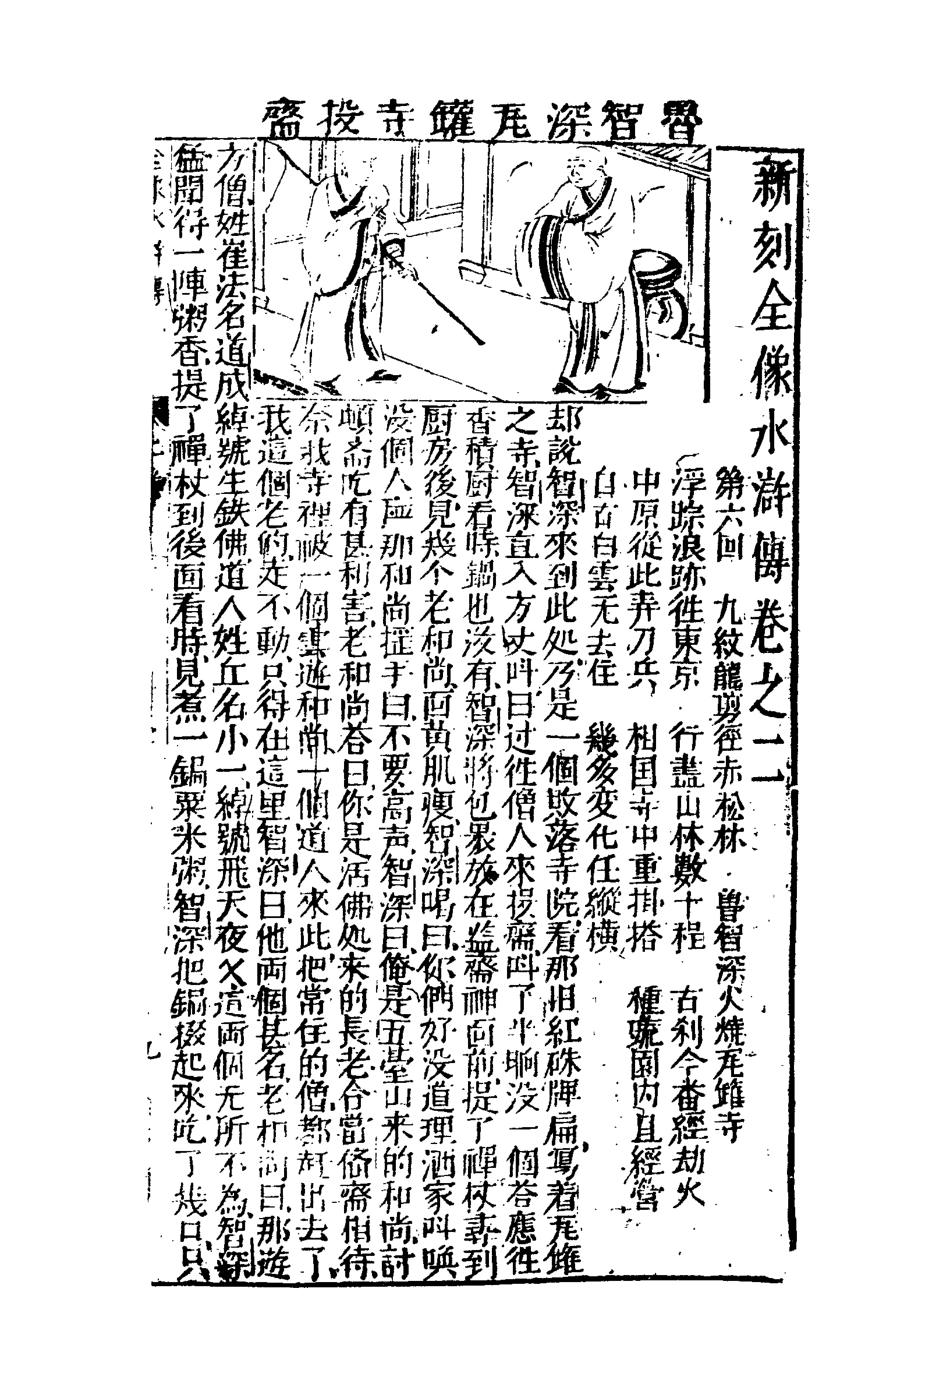 魯智深瓦鑵寺投齋
新刻全像水滸傳卷之二
第六回　九紋龍剪徑赤松林　魯智深火燒瓦鑵寺
浮踪浪跡徃東京　行盡山林數十程　古刹今番經劫火
中原從此弄刀兵　相国寺中重掛搭　種蔬園內且經營
自古白雲无去住　幾多变化任縱橫
却說智深來到此处乃是一個敗落寺院看那旧紅硃牌扁寫着瓦鑵
之寺智深直入方丈呌曰过徃僧人來投齋呌了半晌没一個荅應徃
香積厨看時鍋也没有智深將包裹放在監齋神面前提了禪杖尋到
厨房後見幾个老和尚面黄肌瘦智深喝曰你們好没道理洒家呌喚
没個人應那和尚摇手曰不要高声智深曰俺是五臺山來的和尚討
頓斎吃有甚利害老和尚荅曰你是活佛处來的長老合當俻齋相待
奈我寺裡被一個雲遊和尚一個道人來此把常住的僧都赶出去了
我這個老的走不動只得在這里智深曰他両個甚名老和尚曰那遊
方僧姓崔法名道成綽號生鉄佛道人姓丘名小一綽號飛天夜乂這両個无所不為智深
猛聞得一陣粥香提了禪杖到後面看時見煮一鍋粟米粥智深把鍋掇起來吃了幾口只
全像水滸傳